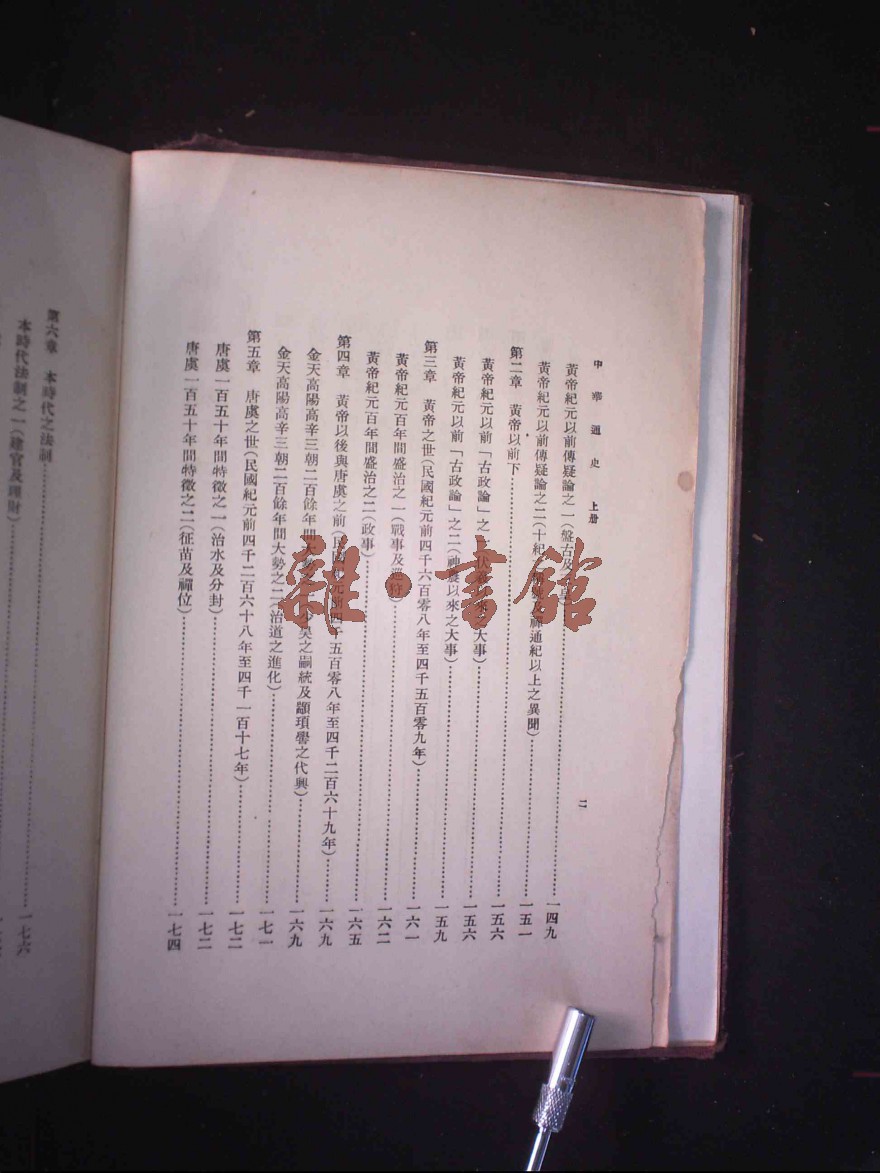 中華通史 上冊 二
黃帝紀元以前傳疑論之一(盤古及三皇)……一四九
黃帝紀元以前傳疑論之二(十紀之稱號及禪通紀以上之異聞)……一五一
第二章 黃帝以前下……一五六
黃帝紀元以前「古政論」之一(伏羲以來之大事)……一五六
黃帝紀元以前「古政論」之二(神農以來之大事)……一五九
第三章 黃帝之世(民國紀元前四千六百零八年至四千五百零九年)……一六一
黃帝紀元百年間盛治之一(戰事及巡狩)……一六二
黃帝紀元百年間盛治之二(政事)……一六五
第四章 黃帝以後與唐虞之前(民國紀元前四千五百零八年至四千二百六十九年)……一六九
金天高陽高辛三朝二百餘年間大勢之一(少昊之嗣統及顓頊嚳之代興)……一六九
金天高陽高辛三朝二百餘年間大勢之二(治道之進化)……一七一
第五章 唐虞之世(民國紀元前四千二百六十八年至四千一百十七年)……一七二
唐虞一百五十年間特徵之一(治水及分封)……一七二
唐虞一百五十年間特徵之二(征苗及禪位)……一七四
第六章 本時代之法制
本時代法制之一(建官及理財)……一七六
雜·書館